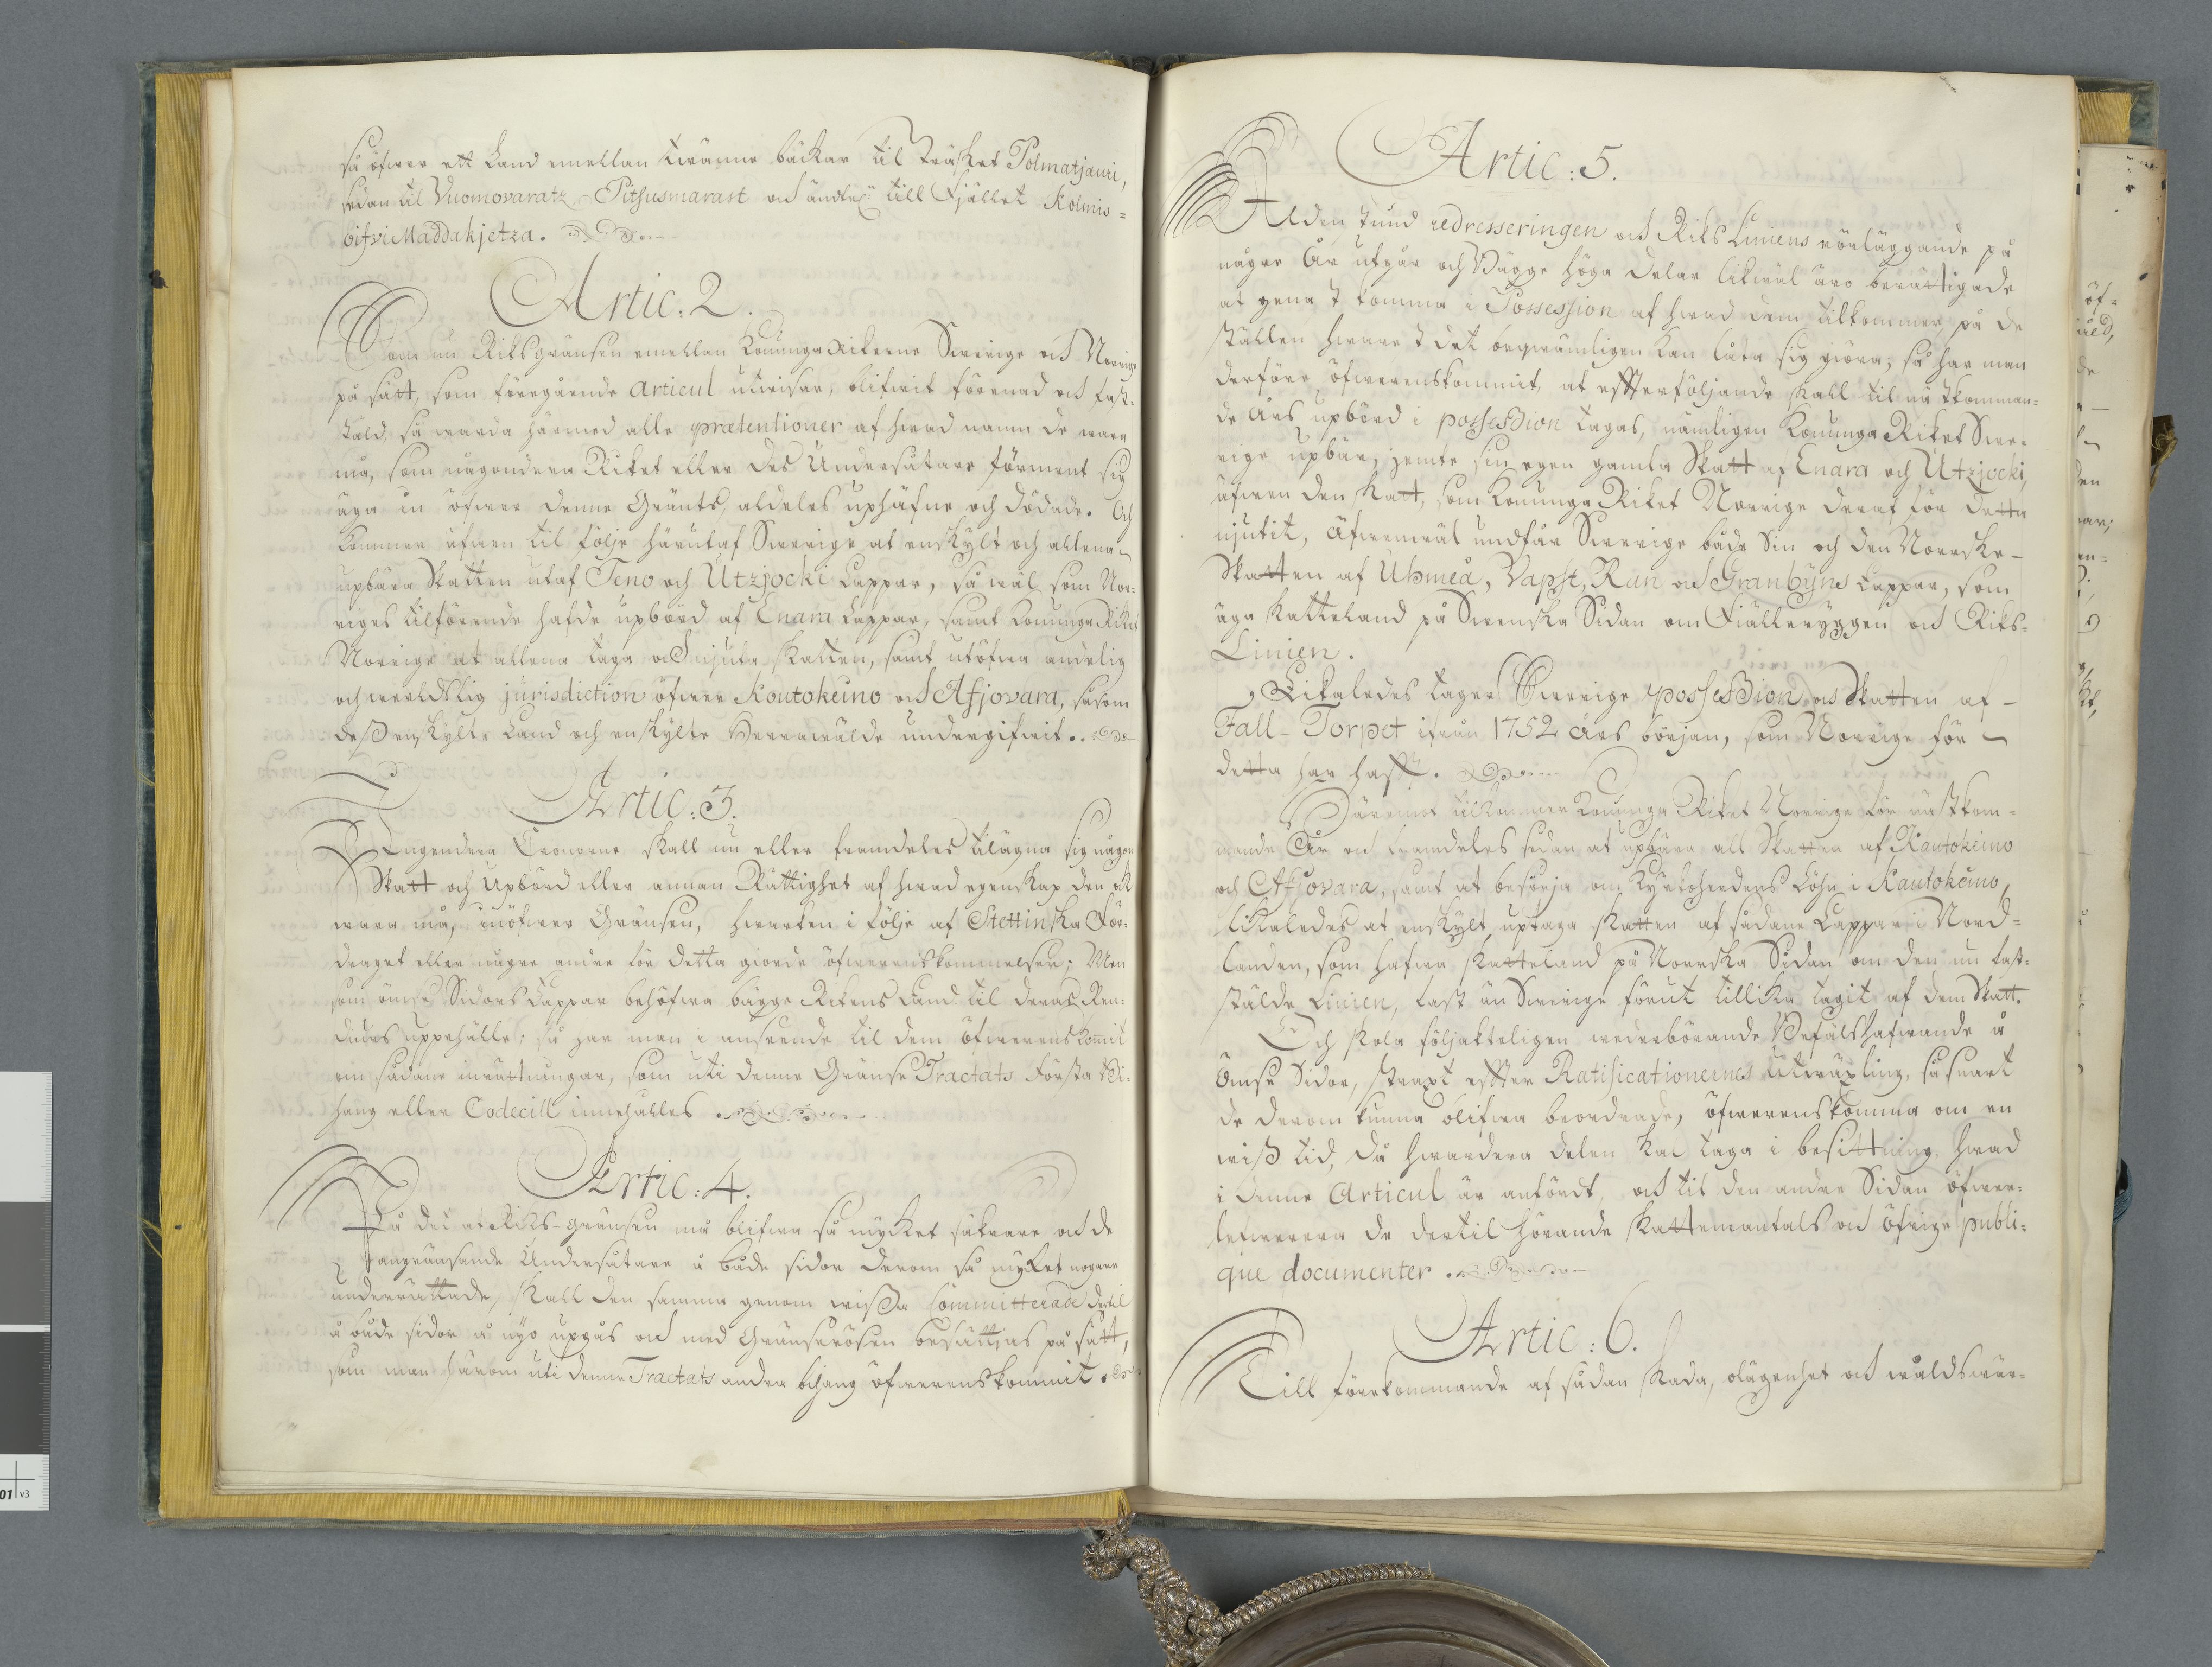 så öfwer ett Land emellan twänne bäckar til Träsket Polmatjauri,
sedan til Vuomovaratz Pitsusmarast och ändtel: till Fjället Kolmis=
oifvi Maddakjetza.
Artic: 2.
Som nu Riksgränsen emellan Konunga Rikerne Swerige och Norrige
på sätt, som föregående Articul utwisar, blifwit förenad och fast-
stäld, så warda härmed alle prætentioner af hwad namn de wara
må, som någondera Riket eller des Undersåtare förment sig
äga in öfwer denne Gränts, aldeles uphäfne och dödade. Och
kommer äfwen til följe härutaf Swerige at enskylt och allena
upbära Skatten utaf Teno och Utzjocki Lappar, så wäl som Nor-
riges tilförende hafde upbörd af Enara Lappar, samt Konunga Riket
Norrige at allena taga och njuta skatten, samt utöfwa andelig
och werldslig jurisdiction öfwer Koutokeino och Afjovara, såsom
dess enskylte Land och enskylte Herrawälde undergifwit.
Artic: 3.
Ingendera Cronorne skall nu eller framdeles tilägna sig någon
Skatt och Upbörd eller annan Rättighet af hwad egenskap den ock
wara må, inöfwer Gränsen, hwarken i följe af Stettinska För-
draget eller någre andre för detta giorde öfwerenskommelser; Men
som ömse Sidors Lappar behöfwa bägge Rikens Land til deras Ren-
diurs uppehälle; så har man i anseende til dem öfwerenskommit
om sådane inrättningar, som uti denne Gränse Tractats första Bi-
hang eller Codecill innehålles.
Artic: 4.
På det at Riks-gränsen må blifwa så mycket säkrare och de
angränsande Undersåtare å både sidor derom så mycket nogare
underrättade, skall den samma genom wissa Committerade dertil
å både sidor å nyo upgås och med Gränserösen besättjas på sätt,
som man härom uti denne Tractats andra bihang öfwerenskommit.
Artic: 5.
Alden stund redresseringen och Riks Liniens rörläggande på
någre År utgår och Bägge höga Delar likwäl äro berättigade
at genast komma i Possession af hwad dem tilkommer, på de
ställen hwarest det beqwämligen kan låta sig giöra; så har man
derföre öfwerenskommit, at effterföljande skall til nästkomman-
de Års upbörd i possession tagas, nämligen Konunga Riket Swe-
rige upbär, jemte sin egen gamla Skatt af Enara och Utzjocki,
äfwen den skatt, som Konunga Riket Norrige deraf för detta
njutit, Äfwenwäl undfår Swerige både Sin och den Norrske
Skatten af Uhmeå, Vapst, Ran och Granbyns Lappar, som
äga skatteland på Swenska Sidan om Fjällryggen och Riks-
Linien.
Likaledes tager Swerige possession och Skatten af
Fall-Torpet ifrån 1752 års början, som Norrige för
detta har hafft.
Däremot tilkommer Konunga Riket Norrige för nästkom-
mande År och framdeles sedan at upbära all Skatten af Kautokeino
och Afjovara, samt at besörja om Kyrkoherdens Löhn i Kautokeino,
likaledes at enskylt uptaga skatten af sådane Lappar i Nord-
landen, som hafwa skatteland på Norrska Sidan om den nu fast-
stälde Linien, fast än Swerige förut tillika tagit af dem Skatt.
Och skola följakteligen wederbörande Befälshafwande å
Ömse Sidor, straxt effter Ratificationernes utwäxling, så snart
de derom kunna blifwa beordrade, öfwerenskomma om en
wiss tid, då hwardera delen skal taga i besittning hwad
i denne Articul är anfördt, och til den andre Sidan öfwer-
lefwerera de dertil hörande skattemantals och öfrige publi-
que documenter.
Artic: 6.
Till förekommande af sådan skada, olägenhet och wåldswär-